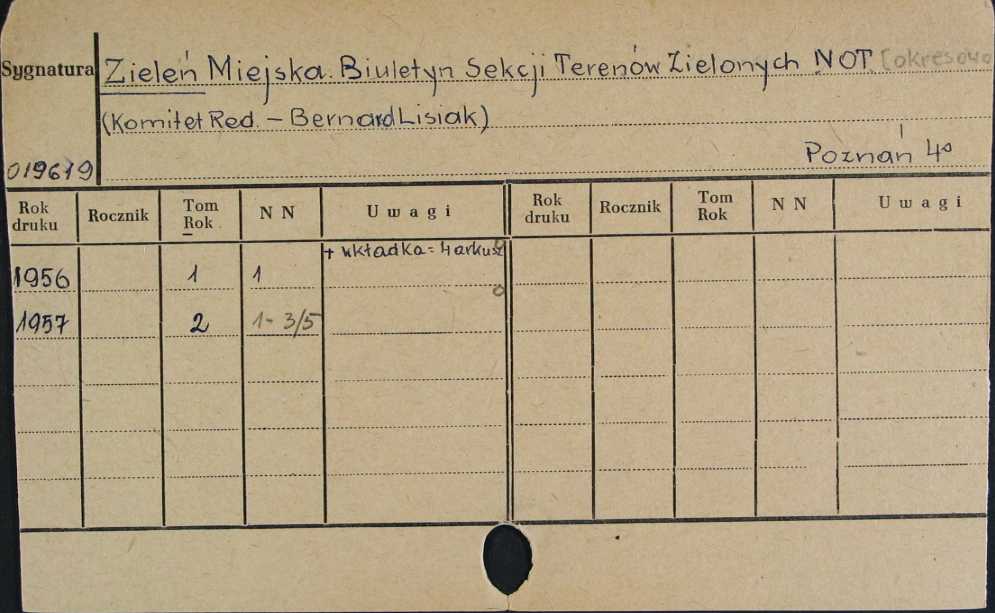 Sygnatura Zieleń Miejska. Biuletyn Sekcji Terenów Zielonych NOT [okresowo
(Komitet Red. – Bernard Lisiak)
019619 Poznań 4°
Rok druku Rocznik Tom Rok N N Uwagi Rok druku Rocznik Tom Rok N N Uwagi
+ wkładka = 4 arkusz
1956 1 1
1957 2 1- 3/5